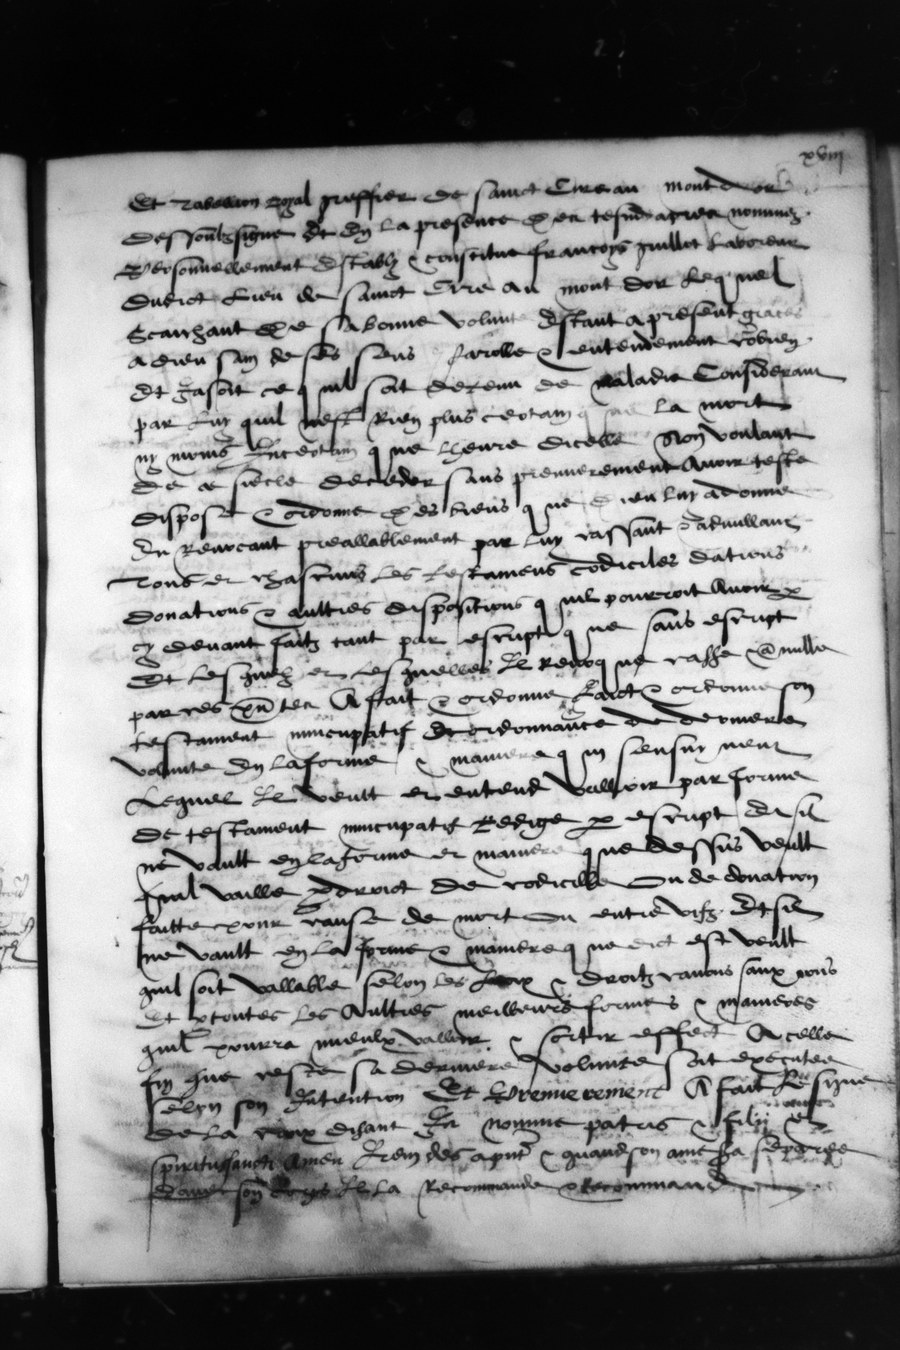 xviij
Et tabellion royal greffier de sainct Cire au mont d or
dessoubzsigne Et En la presence des tesmoingz apres nommez
Personnellement Estably & constitue francoys guillot laboreur
dudict Lieu de sainct Cire au mont dor Lequel
Scaichant de sa bonne volunte Estant a present graces
a dieu sain de ses sens parolle & entendement
Et Jasoit ce quil soit detenu de maladie Considerant
par Luy quil nest Rien plus certain que la mort
ny moings Incertain que lheure dicelle Non voulant
de ce siecle deceder sans premierement Avoir teste
dispose & ordonne des biens que dieu luy a donne
En Revocant preallablement par luy cassant & adnullant
Tous et chascuns les testamens codiciles dations
donations & aultres dispositions quil pourroit Avoir
cy devant faitz tant par escript que sans escript
Et Lesquelz et Lesquelles Il Revoque casse & anulle
par ces presentes A fait & ordonne faict & ordonne son
testament nuncupatif Et ordonnance de derniere
volunte En la forme & maniere qui sensuyvent
Lequel Il veult et entend valloir par forme
de testament nuncupatif Redige par escript Et sil
ne vault en la forme et maniere que dessus veult
quil vaille par droict de codicille Ou de donation
faitte pour cause de mort Ou entre vifz Et sil
ne vault en la forme & maniere que dict est veult
quil soit vallable selon les Loix & droitz canons
Et toutes les Aultres meilleurs formes & manieres
quil pourra mieulx valloir & sortir effect A celle
fin que ceste sa derniere volunte soit executee
selon son Intention Et Premierement A fait Le signe
de la croix disant In nomine patris & filij &
spiritussancti Amen Item des apnt & quand son ame sa separee
davec son corps Il la Recommande & Recommande